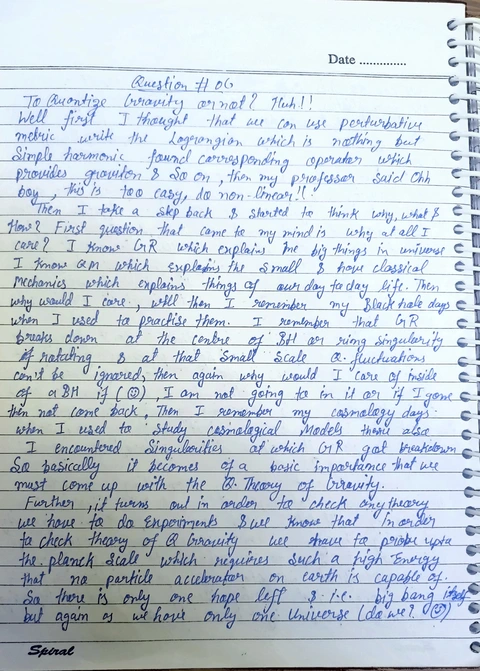 Date ..............
Question # 06
To Quantize Gravity or not? Huh!!
Well first I thought that we can use perturbative
metric write the Lagrangian which is nothing but
Simple harmonic found corresponding operator which
provides graviton & so on, then my professor said Ohh
boy, this is too easy, do non-linear!!
Then I take a step back & started to think why, what &
How? First question that came to my mind is why at all I
care? I know GR which explains the big things in universe
I know QM which explains the small & have classical
Mechanics which explains things of our day to day life. Then
why would I care, well then I remember my Black hole days
when I used to practise them. I remember that GR
breaks down at the centre of BH or ring singularity
if rotating & at that small scale Q. fluctuations
can't be ignored, then again why would I care of inside
of a BH if (☺), I am not going to in it or if I gone
then not come back, Then I remember my cosmology days
when I used to study cosmological Models there also
I encountered Singularities at which GR got breakdown
So basically it becomes of a basic importance that we
must come up with the Q. Theory of Gravity.
Further, it turns out in order to check any theory
we have to do Experiments & we know that In order
to check theory of Q Gravity we have to probe upto
the planck scale which requires such a high Energy
that no particle accelerator on earth is capable of.
So there is only one hope left & i.e. big bang itself
but again as we have only one Universe (do we? ☺)
Spiral